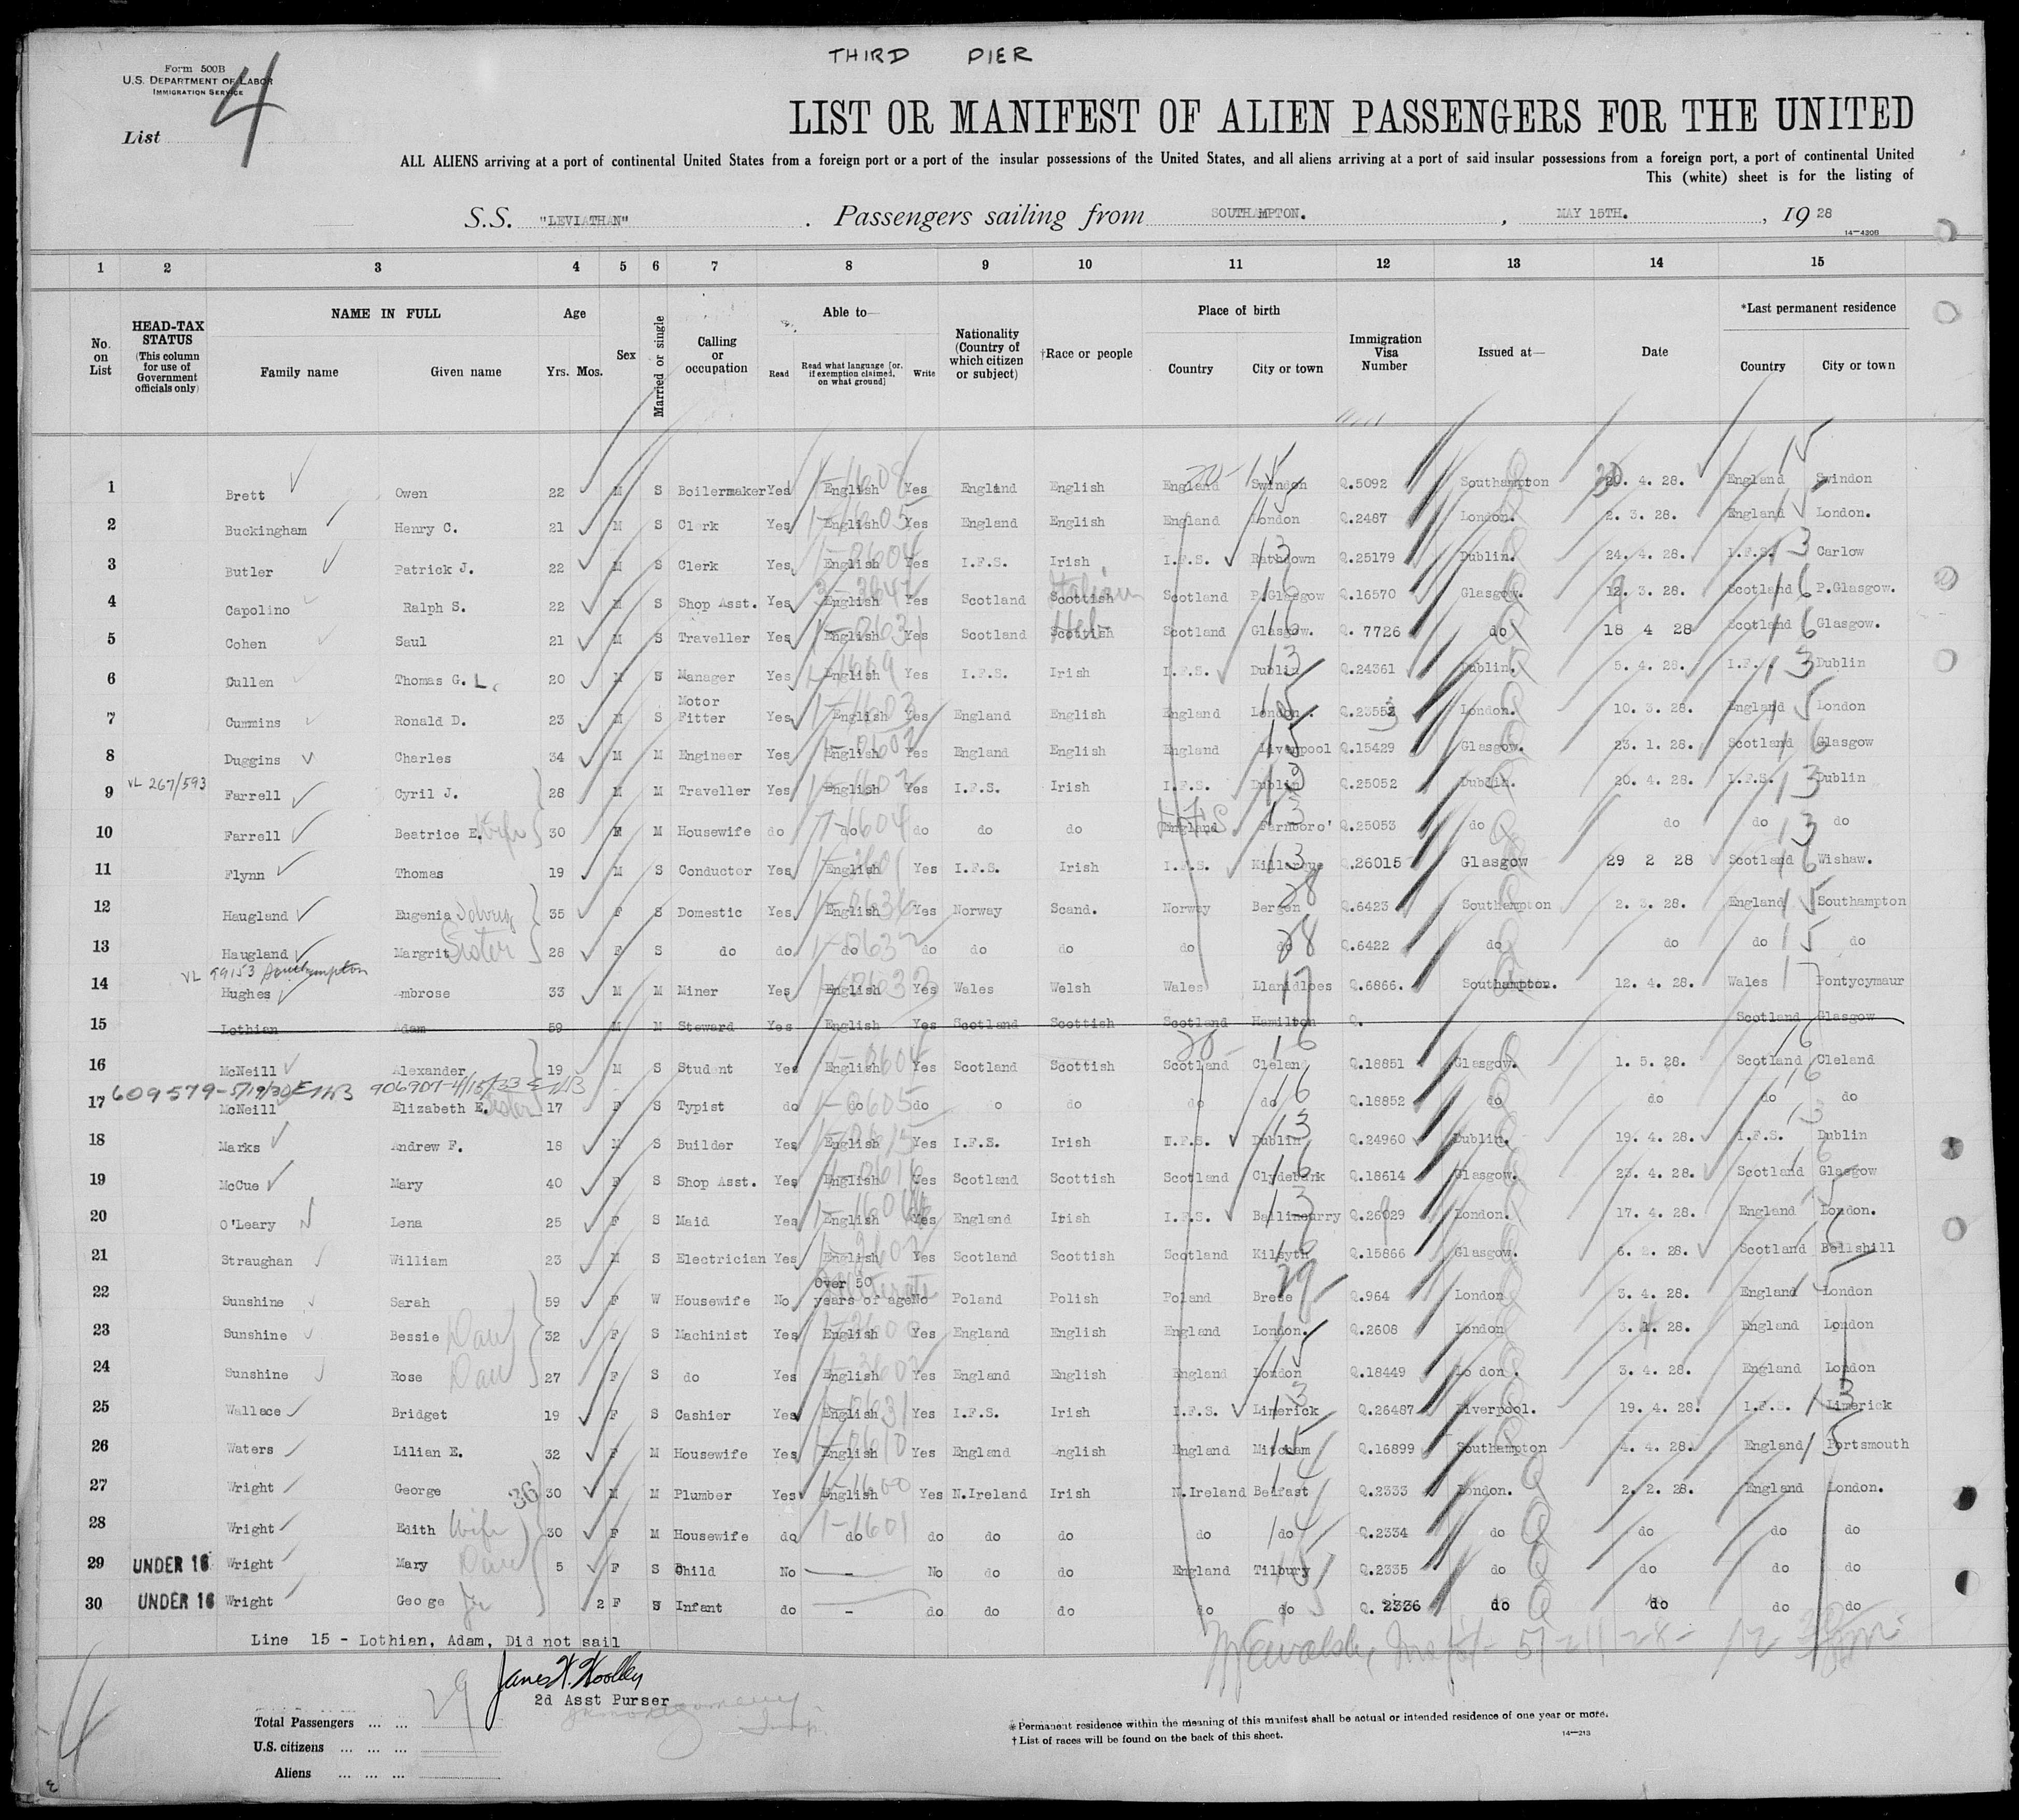 THIRD PIER
Form 500B
U.S. DEPARTMENT OF LABOR
IMMIGRATION SERVICE
List 4
LIST OR MANIFEST OF ALIEN PASSENGERS FOR THE UNITED
ALL ALIENS arriving at a port of continental United States from a foreign port or a port of the insular possessions of the United States, and all aliens arriving at a port of said insular possessions from a foreign port, a port of continental United
This (white) sheet is for the listing of
S.S. "LEVIATHAN" . Passengers sailing from SOUTHAMPTON. , MAY 15TH. , 19 28
14—4208
1 2 3 4 5 6 7 8 9 10 11 12 13 14 15
No. on List
HEAD-TAX STATUS (This column for use of Government officials only)
NAME IN FULL Family name Given name
Age Yrs. Mos.
Sex
Married or single
Calling or occupation
Able to— Read Read what language [or, if exemption claimed, on what ground] Write
Nationality (Country of which citizen or subject)
†Race or people
Place of birth Country City or town
Immigration Visa Number
Issued at—
Date
*Last permanent residence Country City or town
1 Brett Owen 22 M S Boilermaker Yes English Yes England English England Swindon Q.5092 Southampton 4. 28. England Swindon
2 Buckingham Henry C. 21 M S Clerk Yes English Yes England English England London Q.2487 London. 2. 3. 28. England London.
3 Butler Patrick J. 22 M S Clerk Yes English Yes I.F.S. Irish I.F.S. Rathdown Q.25179 Dublin. 24. 4. 28. I.F.S. Carlow
4 Capolino Ralph S. 22 M S Shop Asst. Yes English Yes Scotland Scottish Italian Scotland P.Glasgow Q.16570 Glasgow. 3. 28. Scotland P.Glasgow.
5 Cohen Saul 21 M S Traveller Yes English Yes Scotland Scottish Heb Scotland Glasgow. Q. 7726 do 18 4 28 Scotland Glasgow.
6 Cullen Thomas G. L. 20 M S Manager Yes English Yes I.F.S. Irish I.F.S. Dublin Q.24361 Dublin. 5. 4. 28. I.F. . Dublin
7 Cummins Ronald D. 23 M S Motor Fitter Yes English Yes England English England London. Q.23552 London. 10. 3. 28. England London
8 Duggins Charles 34 M M Engineer Yes English Yes England English England Liverpool Q.15429 Glasgow. 23. 1. 28. Scotland Glasgow
VL 267/593
9 Farrell Cyril J. 28 M M Traveller Yes English Yes I.F.S. Irish I.F.S. Dublin Q.25052 Dublin. 20. 4. 28. I.F.S. Dublin
10 Farrell Beatrice E. Wife 30 M Housewife do do do do do England Farnboro' Q.25053 do do do do
11 Flynn Thomas 19 M S Conductor Yes English Yes I.F.S. Irish I.F.S. Q.26015 Glasgow 29 2 28 Scotland Wishaw.
12 Haugland Eugenia 35 F S Domestic Yes English Yes Norway Scand. Norway Bergen Q.6423 Southampton 2. 3. 28. England Southampton
13 Haugland Margrit Sister 28 F S do do do do do do do do Q.6422 do do do do
VL 99153 Southampton
14 Hughes Ambrose 33 M M Miner Yes English Yes Wales Welsh Wales Llanidloes Q.6866. Southampton. 12. 4. 28. Wales Pontycymaur
15 Lothian Adam 59 M M Steward Yes English Yes Scotland Scottish Scotland Hamilton Q. Scotland Glasgow
16 McNeill Alexander 19 M S Student Yes English Yes Scotland Scottish Scotland Cleland Q.18851 Glasgow. 1. 5. 28. Scotland Cleland
609579-5/19/30
17 McNeill Elizabeth E. Sister 17 F S Typist do do do o do do do Q.18852 do do do do
18 Marks Andrew F. 18 M S Builder Yes English Yes I.F.S. Irish I.F.S. Dublin Q.24960 Dublin. 19. 4. 28. I.F.S. Dublin
19 McCue Mary 40 F S Shop Asst. Yes English Yes Scotland Scottish Scotland Clydebank Q.18614 Glasgow. 23. 4. 28. Scotland Glasgow
20 O'Leary Lena 25 F S Maid Yes English Yes England Irish I.F.S. Ballincurry Q.26029 London. 17. 4. 28. England London.
21 Straughan William 23 M S Electrician Yes English Yes Scotland Scottish Scotland Kilsyth Q.15866 Glasgow. 6. 28. Scotland Bellshill
22 Sunshine Sarah 59 F W Housewife No Over 50 years of age No Poland Polish Poland Q.964 London 3. 4. 28. England London
23 Sunshine Bessie Dau 32 F S Machinist Yes English Yes England English England London. Q.2608 London 3. 28. England London
24 Sunshine Rose Dau 27 F S do Yes English Yes England English England London Q.18449 Lo don . 3. 4. 28. England London
25 Wallace Bridget 19 F S Cashier Yes English Yes I.F.S. Irish I.F.S. Limerick Q.26487 Liverpool. 19. 4. 28. I.F.S. Limerick
26 Waters Lilian E. 32 F M Housewife Yes English Yes England English England Mitcham Q.16899 Southampton 4. 4. 28. England Portsmouth
27 Wright George 36 30 M M Plumber Yes English Yes N.Ireland Irish N.Ireland Belfast Q.2333 London. 2. 2. 28. England London.
28 Wright Edith Wife 30 F M Housewife do do do do do do do Q.2334 do do do do
29 UNDER 16 Wright Mary Dau 5 F S Child No - No do do England Tilbury Q.2335 do do do do
30 UNDER 16 Wright Geo ge Jr 2 F S Infant do - do do do do do Q. 2336 do do do do
Line 15 - Lothian, Adam, Did not sail
James H. Woolley
2d Asst Purser
Total Passengers ... ... 29
U.S. citizens ... ... ...
Aliens ... ... ...
※Permanent residence within the meaning of this manifest shall be actual or intended residence of one year or more.
†List of races will be found on the back of this sheet.
14—213
4